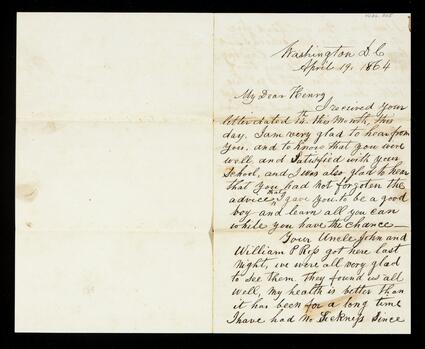 Washington D.C
April 19, 1864
My Dear Henry
I received your
letter dated this Month, this
day. I am very glad to hear from
you, and to know that you were
well, and Satisfied with your
School, and I was also glad to hear
that you had not forgoten the
advice that I gave you to be a good
boy and learn all you can
while you have the chance—
Your Uncle John and
William P Ross got here last
Night, we were all very glad
to see them, they found us all
well, My health is better than
it has been for a long time
I have had No Sickness Since